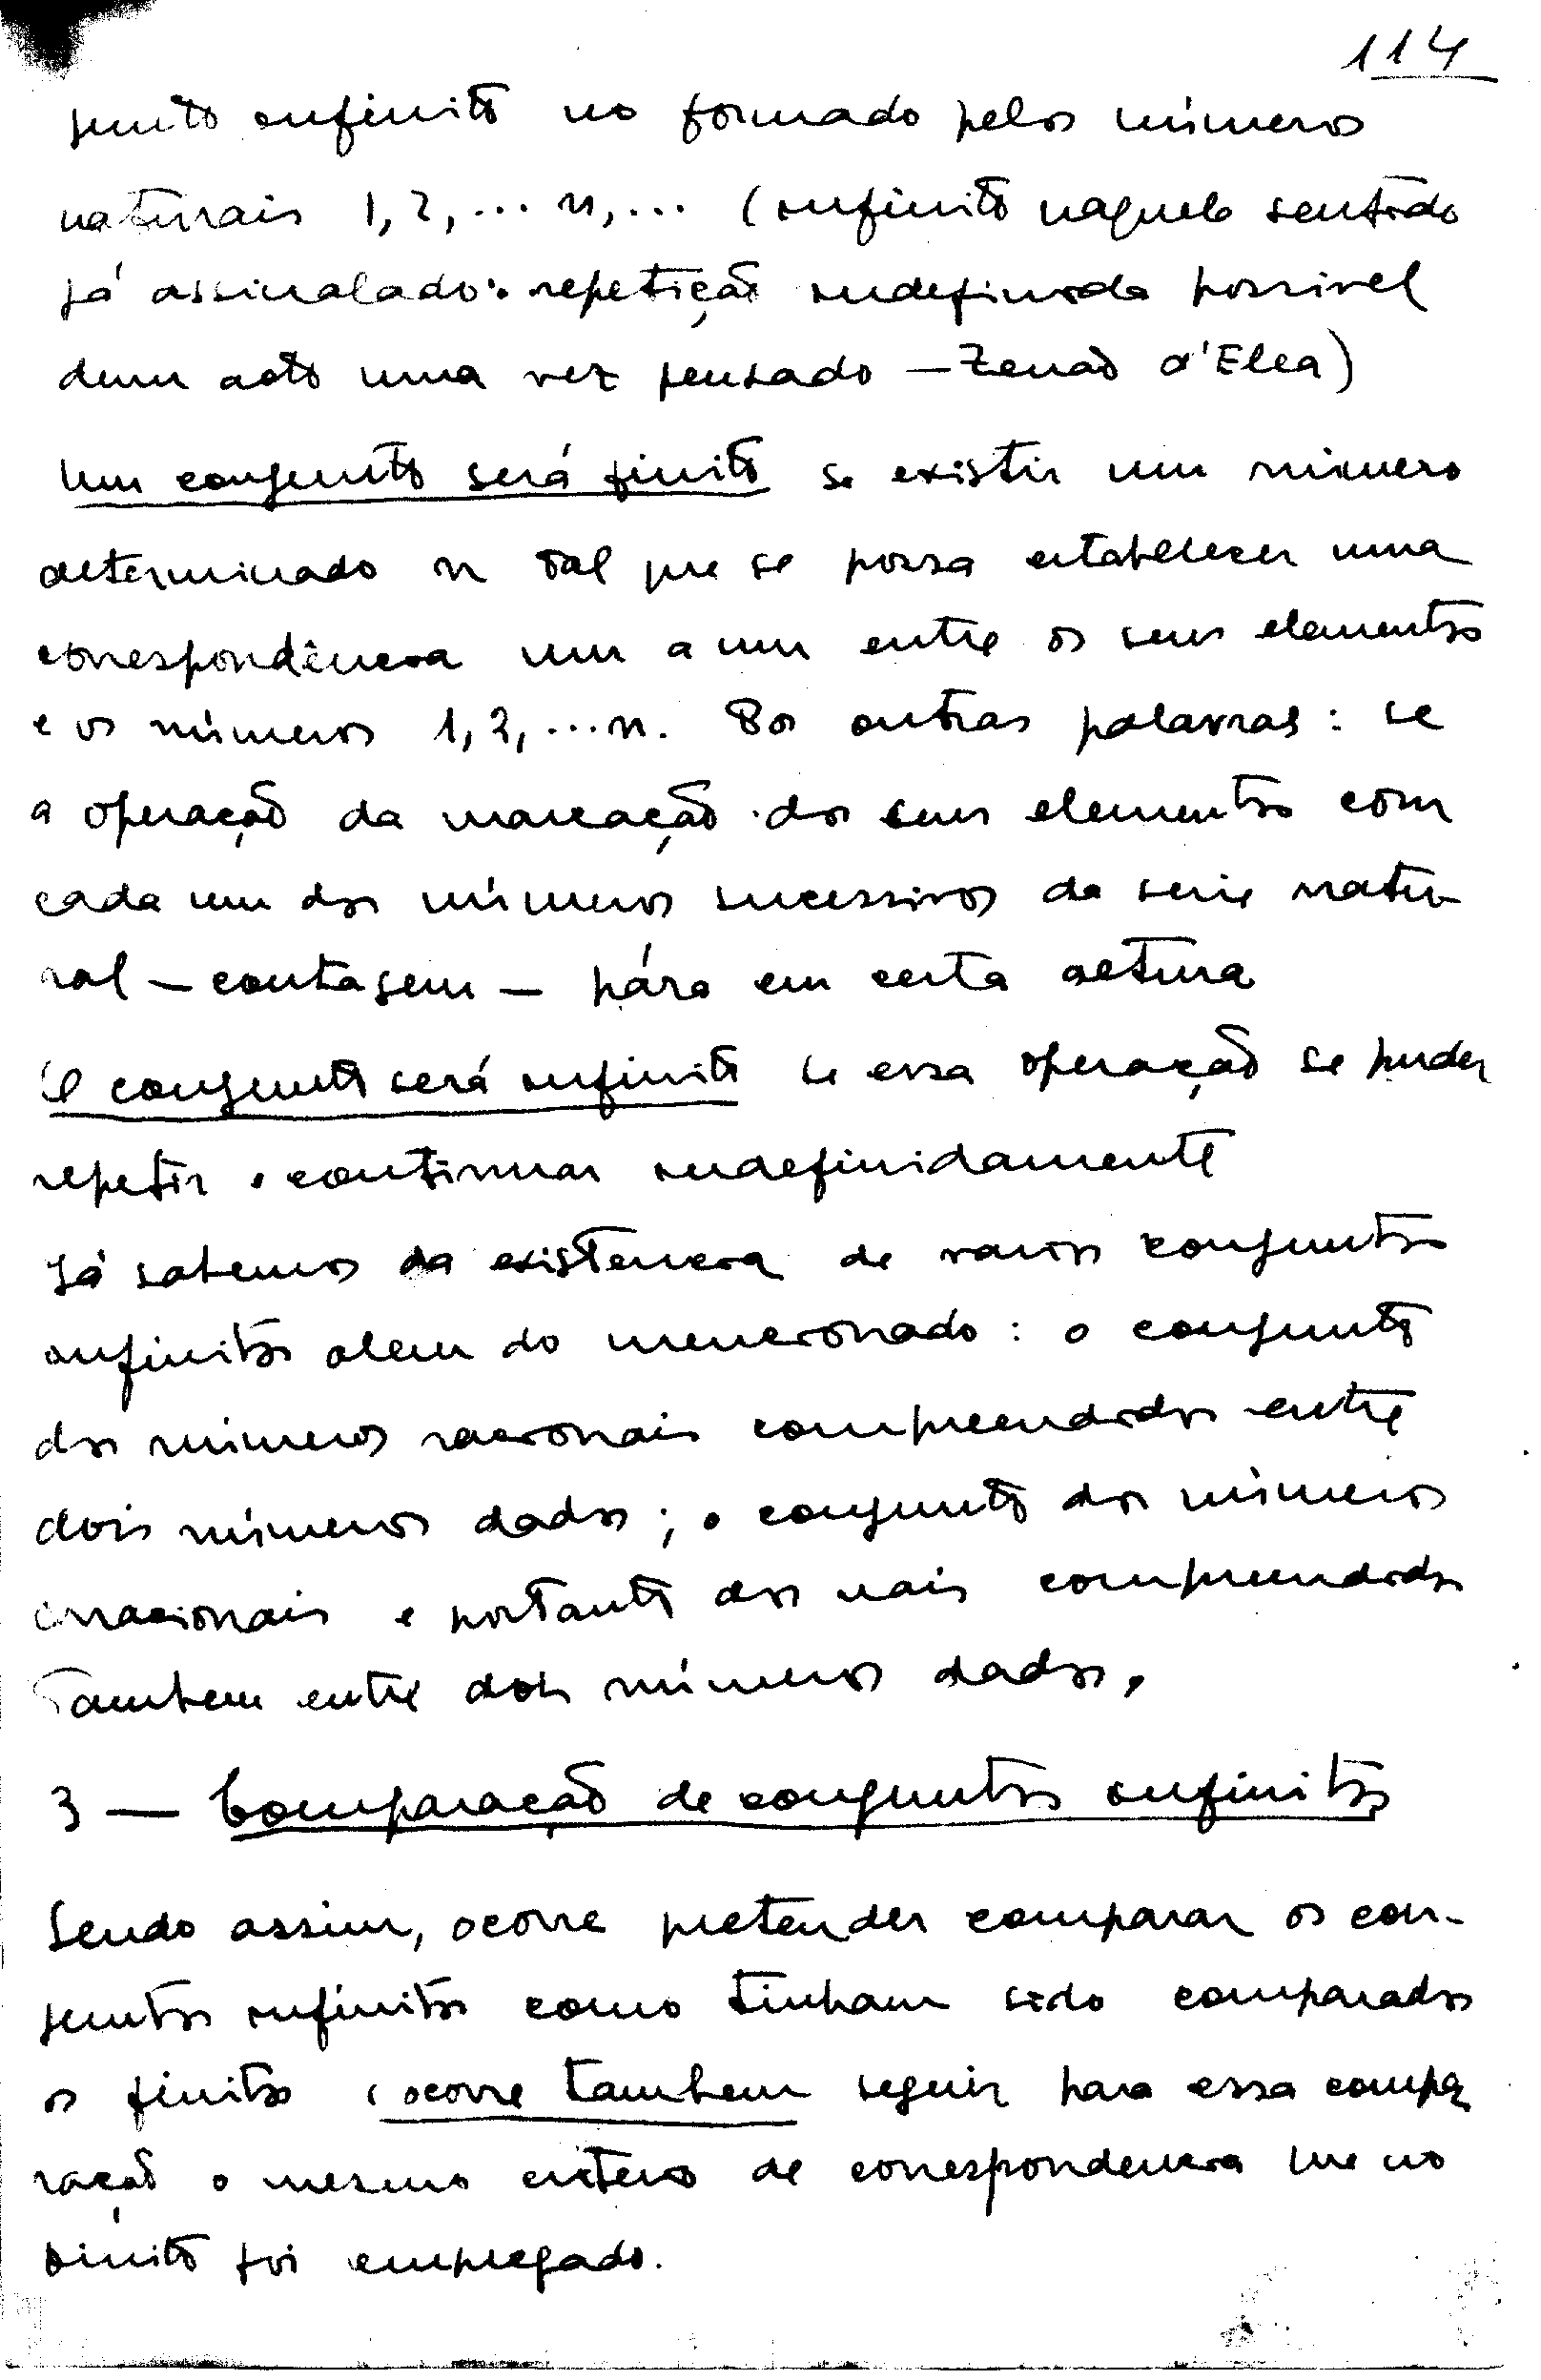 114
junto infinito no formado pelos números
naturais 1, 2, ... n, ... (infinito naquele sentido
já assinalado: repetição indefinida possivel
dum acto uma vez pensado — Zenão d'Elea)
Um conjunto será finito se existir um número
determinado n tal que se possa estabelecer uma
correspondência um a um entre os seus elementos
e os números 1, 2, ... n. Por outras palavras: se
a operação da marcação dos seus elementos com
cada um dos números sucessivos da serie natu-
ral — contagem — pára em certa altura
O conjunto será infinito se essa operação se puder
repetir e continuar indefinidamente
Já sabemos da existencia de varios conjuntos
infinitos alem do mencionado: o conjunto
dos números racionais compreendidos entre
dois números dados; o conjunto dos números
irracionais e portanto dos reais compreendidos
tambem entre dois números dados.
3 — Comparação de conjuntos infinitos
Sendo assim, ocorre pretender comparar os con-
juntos infinitos como tinham sido comparados
os finitos e ocorre tambem seguir para essa compa
ração o mesmo criterio de correspondencia que no
finito foi empregado.